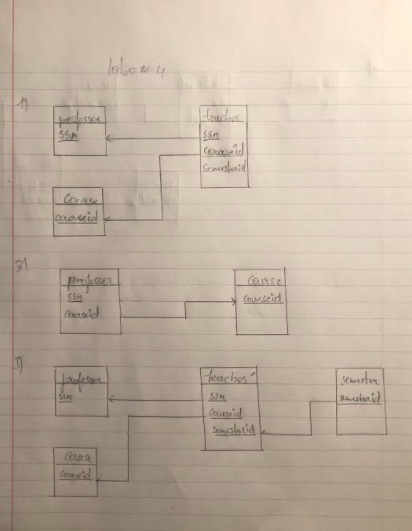 1)
professor
ssn
teaches
ssn
courseid
semesterid
course
courseid
3)
professor
ssn
courseid
course
courseid
professor
ssn
teaches
ssn
courseid
semesterid
semester
semesterid
course
courseid